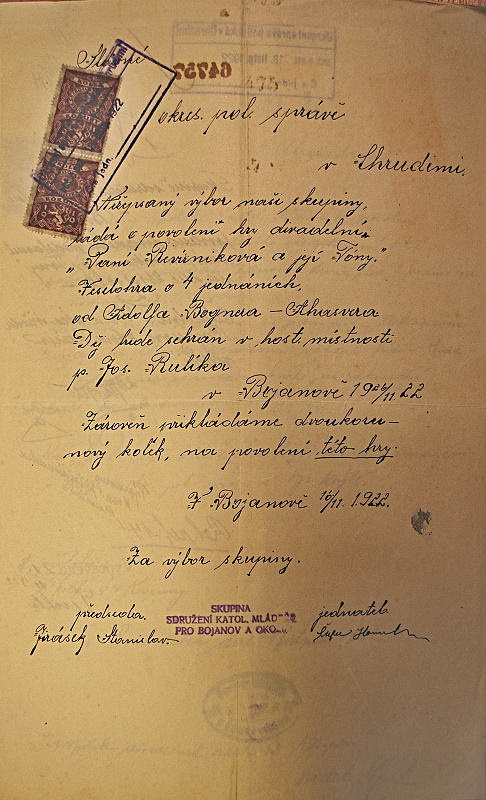 Slavné
64757
okres. pol. správě
v Chrudimi.
Nížepsaný výbor naší skupiny,
žádá o povolení hry divadelní,
"Paní Rivírníková a její Tóny."
Veselohra o 4 jednáních,
od Adolfa Bognera – Ahasvera
Děj bude sehrán v host. místnosti
p. Jos. Rulíka
v Bojanově 19 26/11. 22
Zároveň přikládáme dvoukoru-
nový kolek, na povolení této hry.
V Bojanově 10/11. 1922.
Za výbor skupiny.
předseda. jednatel
Jirásek Stanislav.
SKUPINA
SDRUŽENÍ KATOL. MLÁDEŽE
PRO BOJANOV A OKOLÍ